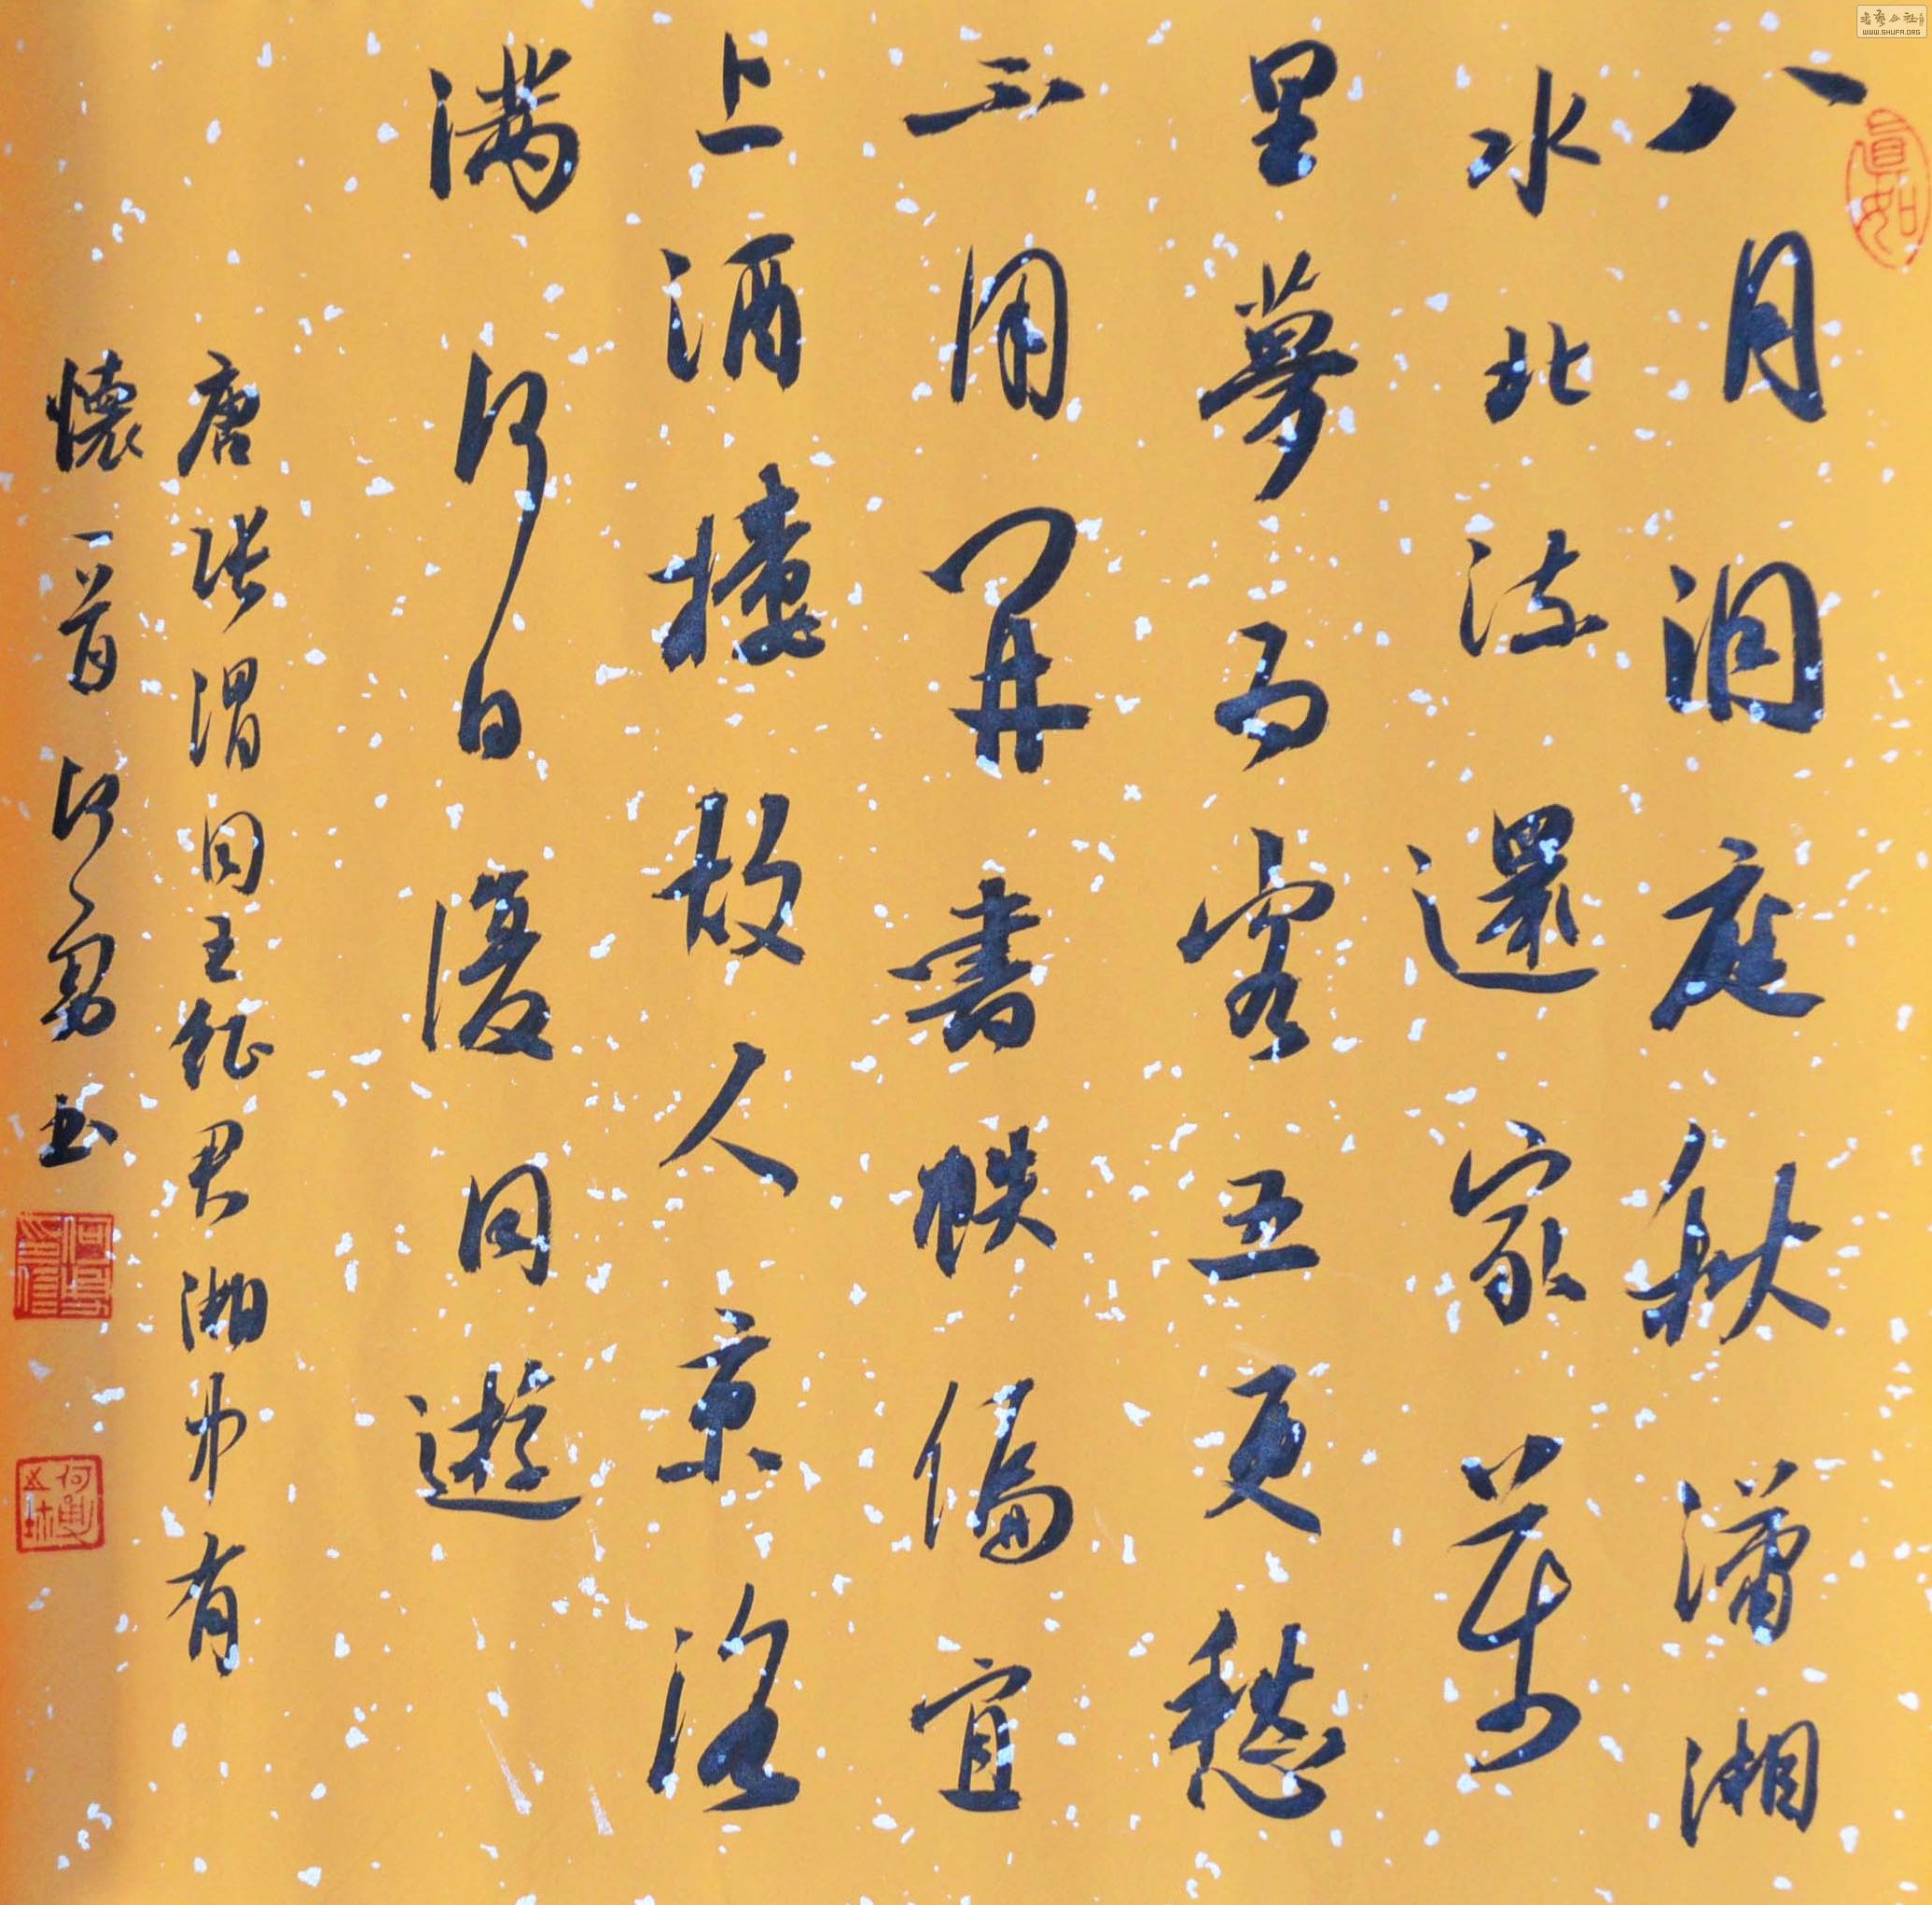 八月洞庭秋瀟湘
水北流還家萬
里夢為客五更愁
不用開書帙偏宜
上酒樓故人京洛
满何日復同遊
唐張渭同王徵君湘中有
懷一首何勇書
真如
WWW.SHUFA.ORG